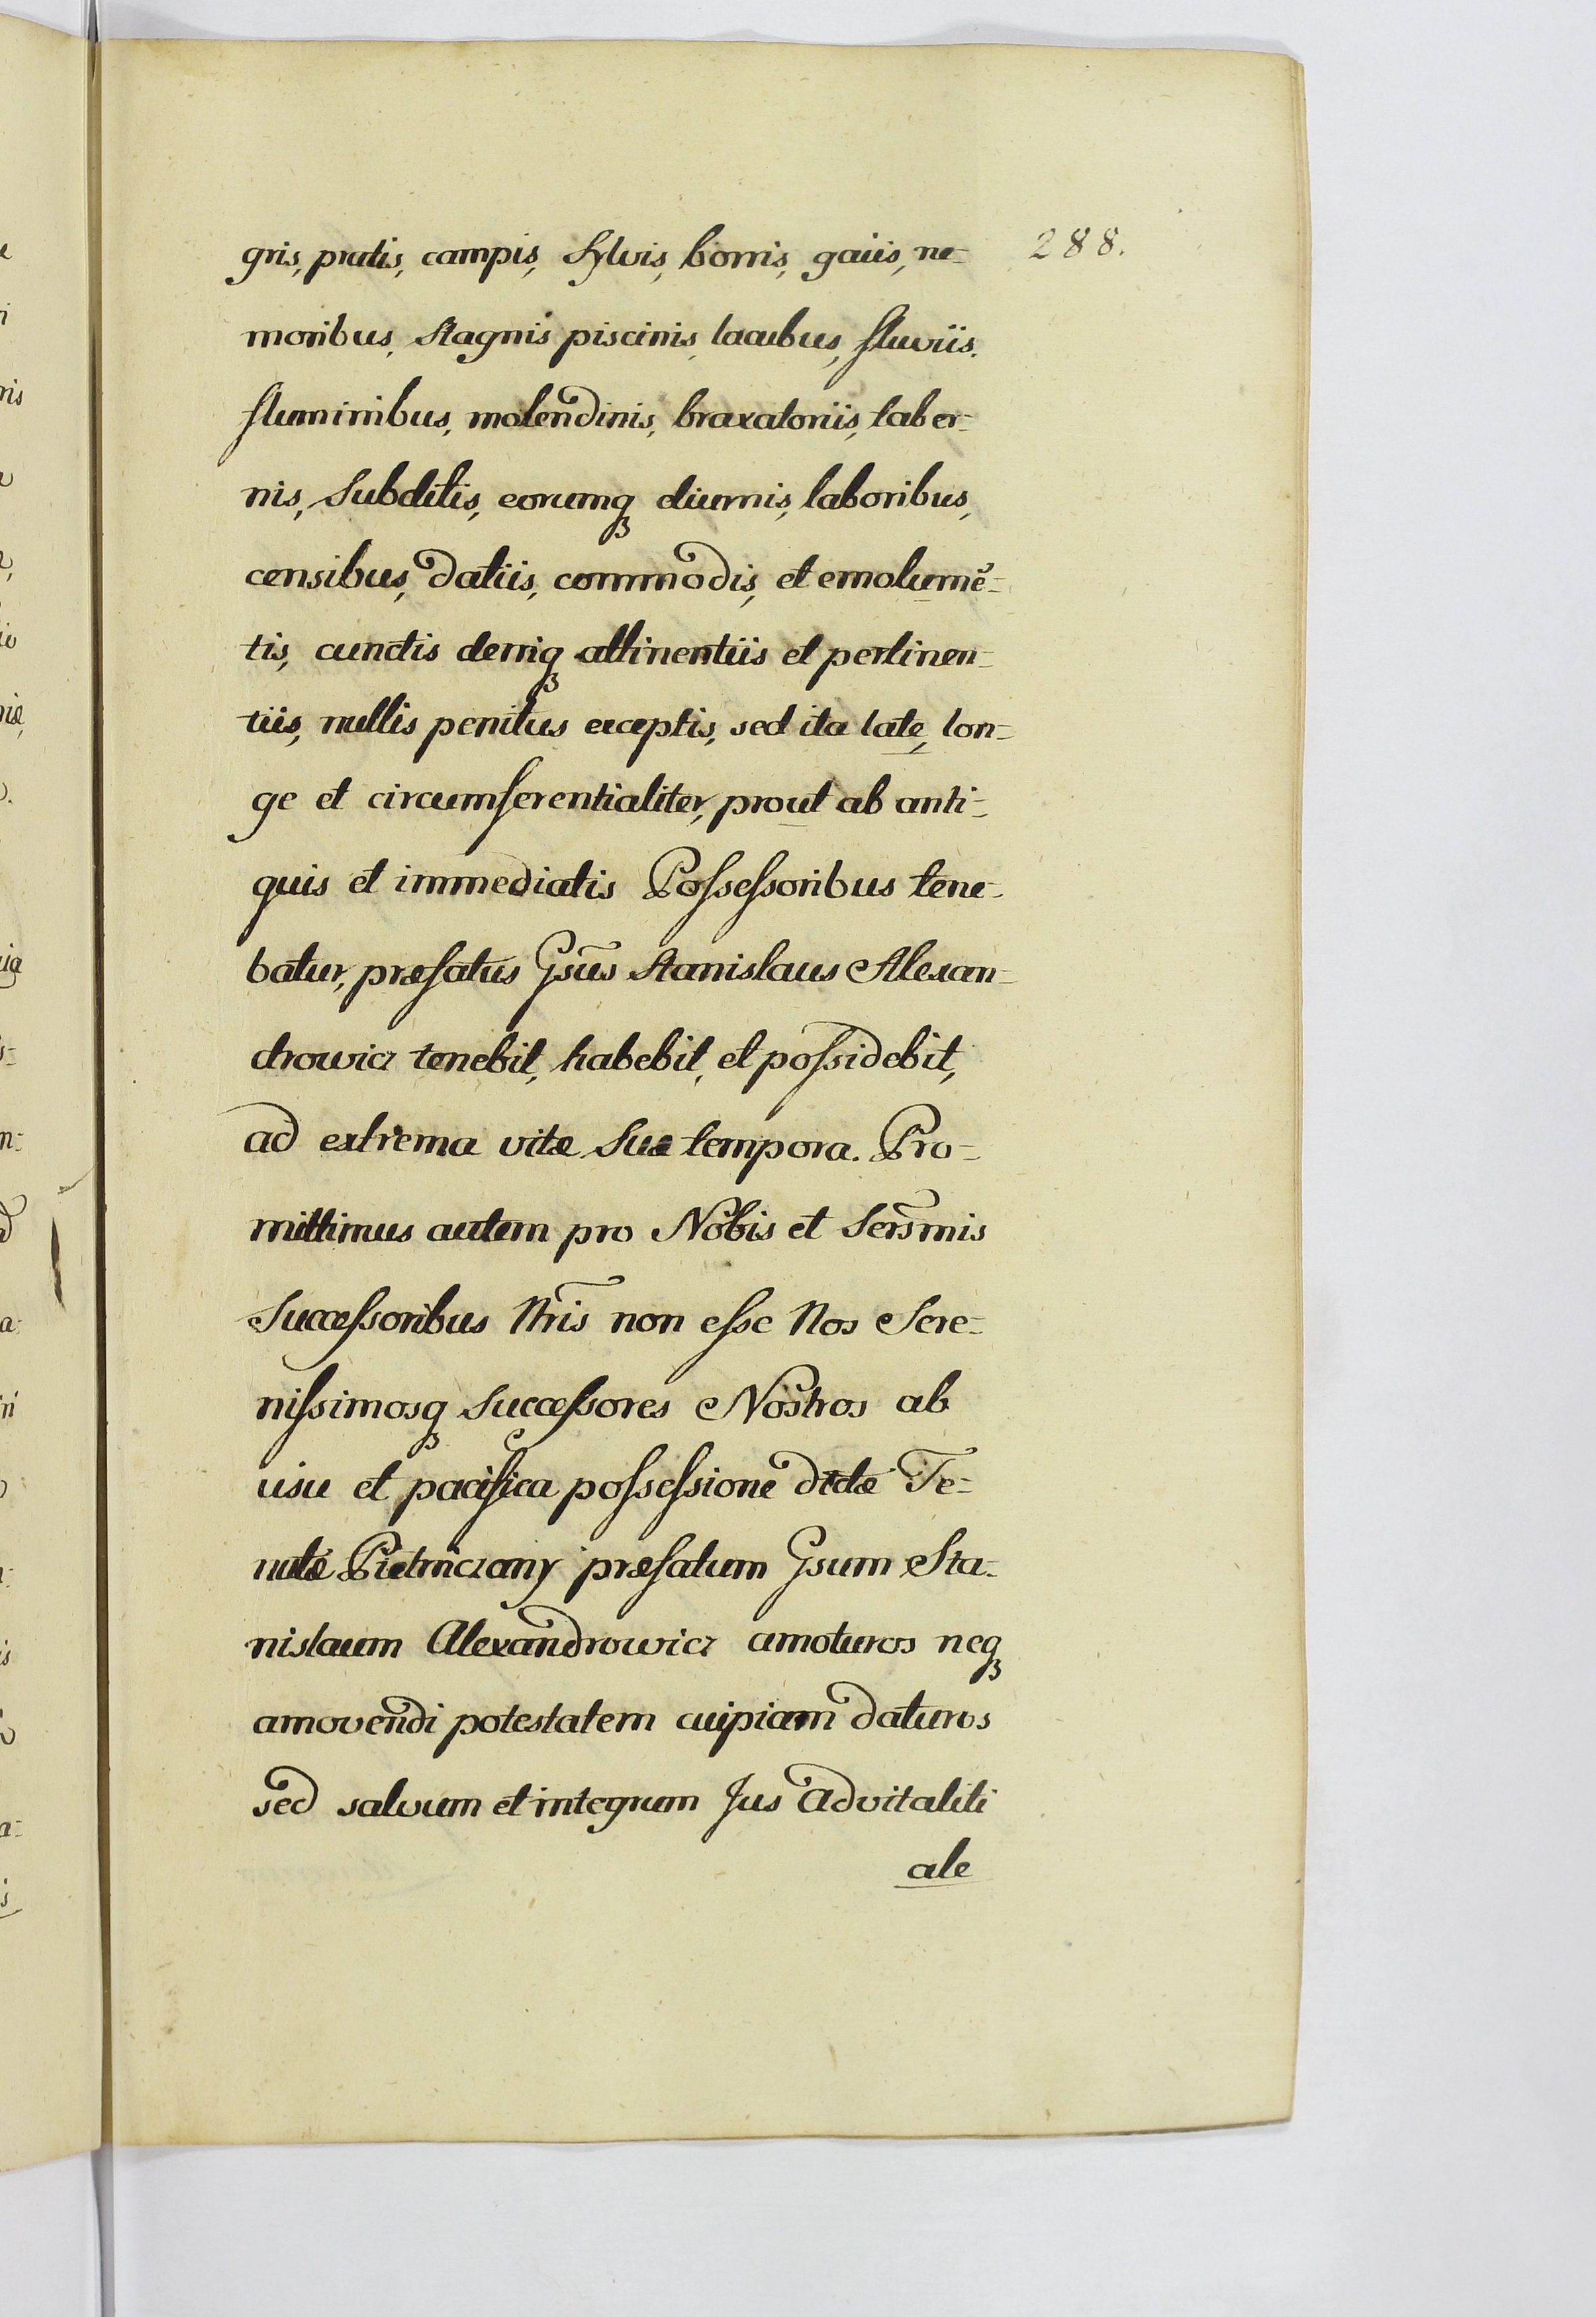 gris, pratis, campis, Sylvis, borris, gaiis, ne- 288.
moribus, Stagnis piscinis, lacubus, fluviis.
fluminibus, molendinis, braxatoriis, taber-
nis, Subditis, eorumq₃ diurnis, laboribus,
censibus, datiis, commodis, et emolumē-
tis, cunctis deniq₃ attinentiis et pertinen-
tiis, nullis penitus exceptis, sed ita late, lon-
ge et circumferentialiter, prout ab anti-
quis et immediatis Possessoribus tene-
batur, præfatus Gsūs Stanislaus Alexan-
drowicz tenebit, habebit, et possidebit,
ad extrema vitæ Suæ tempora. Pro-
mittimus autem pro Nobis et Serm̄is
Successoribus Nrīs non esse Nos Sere-
nissimosq₃ Successores Nostros ab
usu et pacifica possessionē dictæ Te-
nutæ Pietriczany præfatum Gsum Sta-
nislaum Alexandrowicz amoturos neq₃
amovendi potestatem cuipiam daturos
sed salvum et integrum Jus Advitaliti
ale